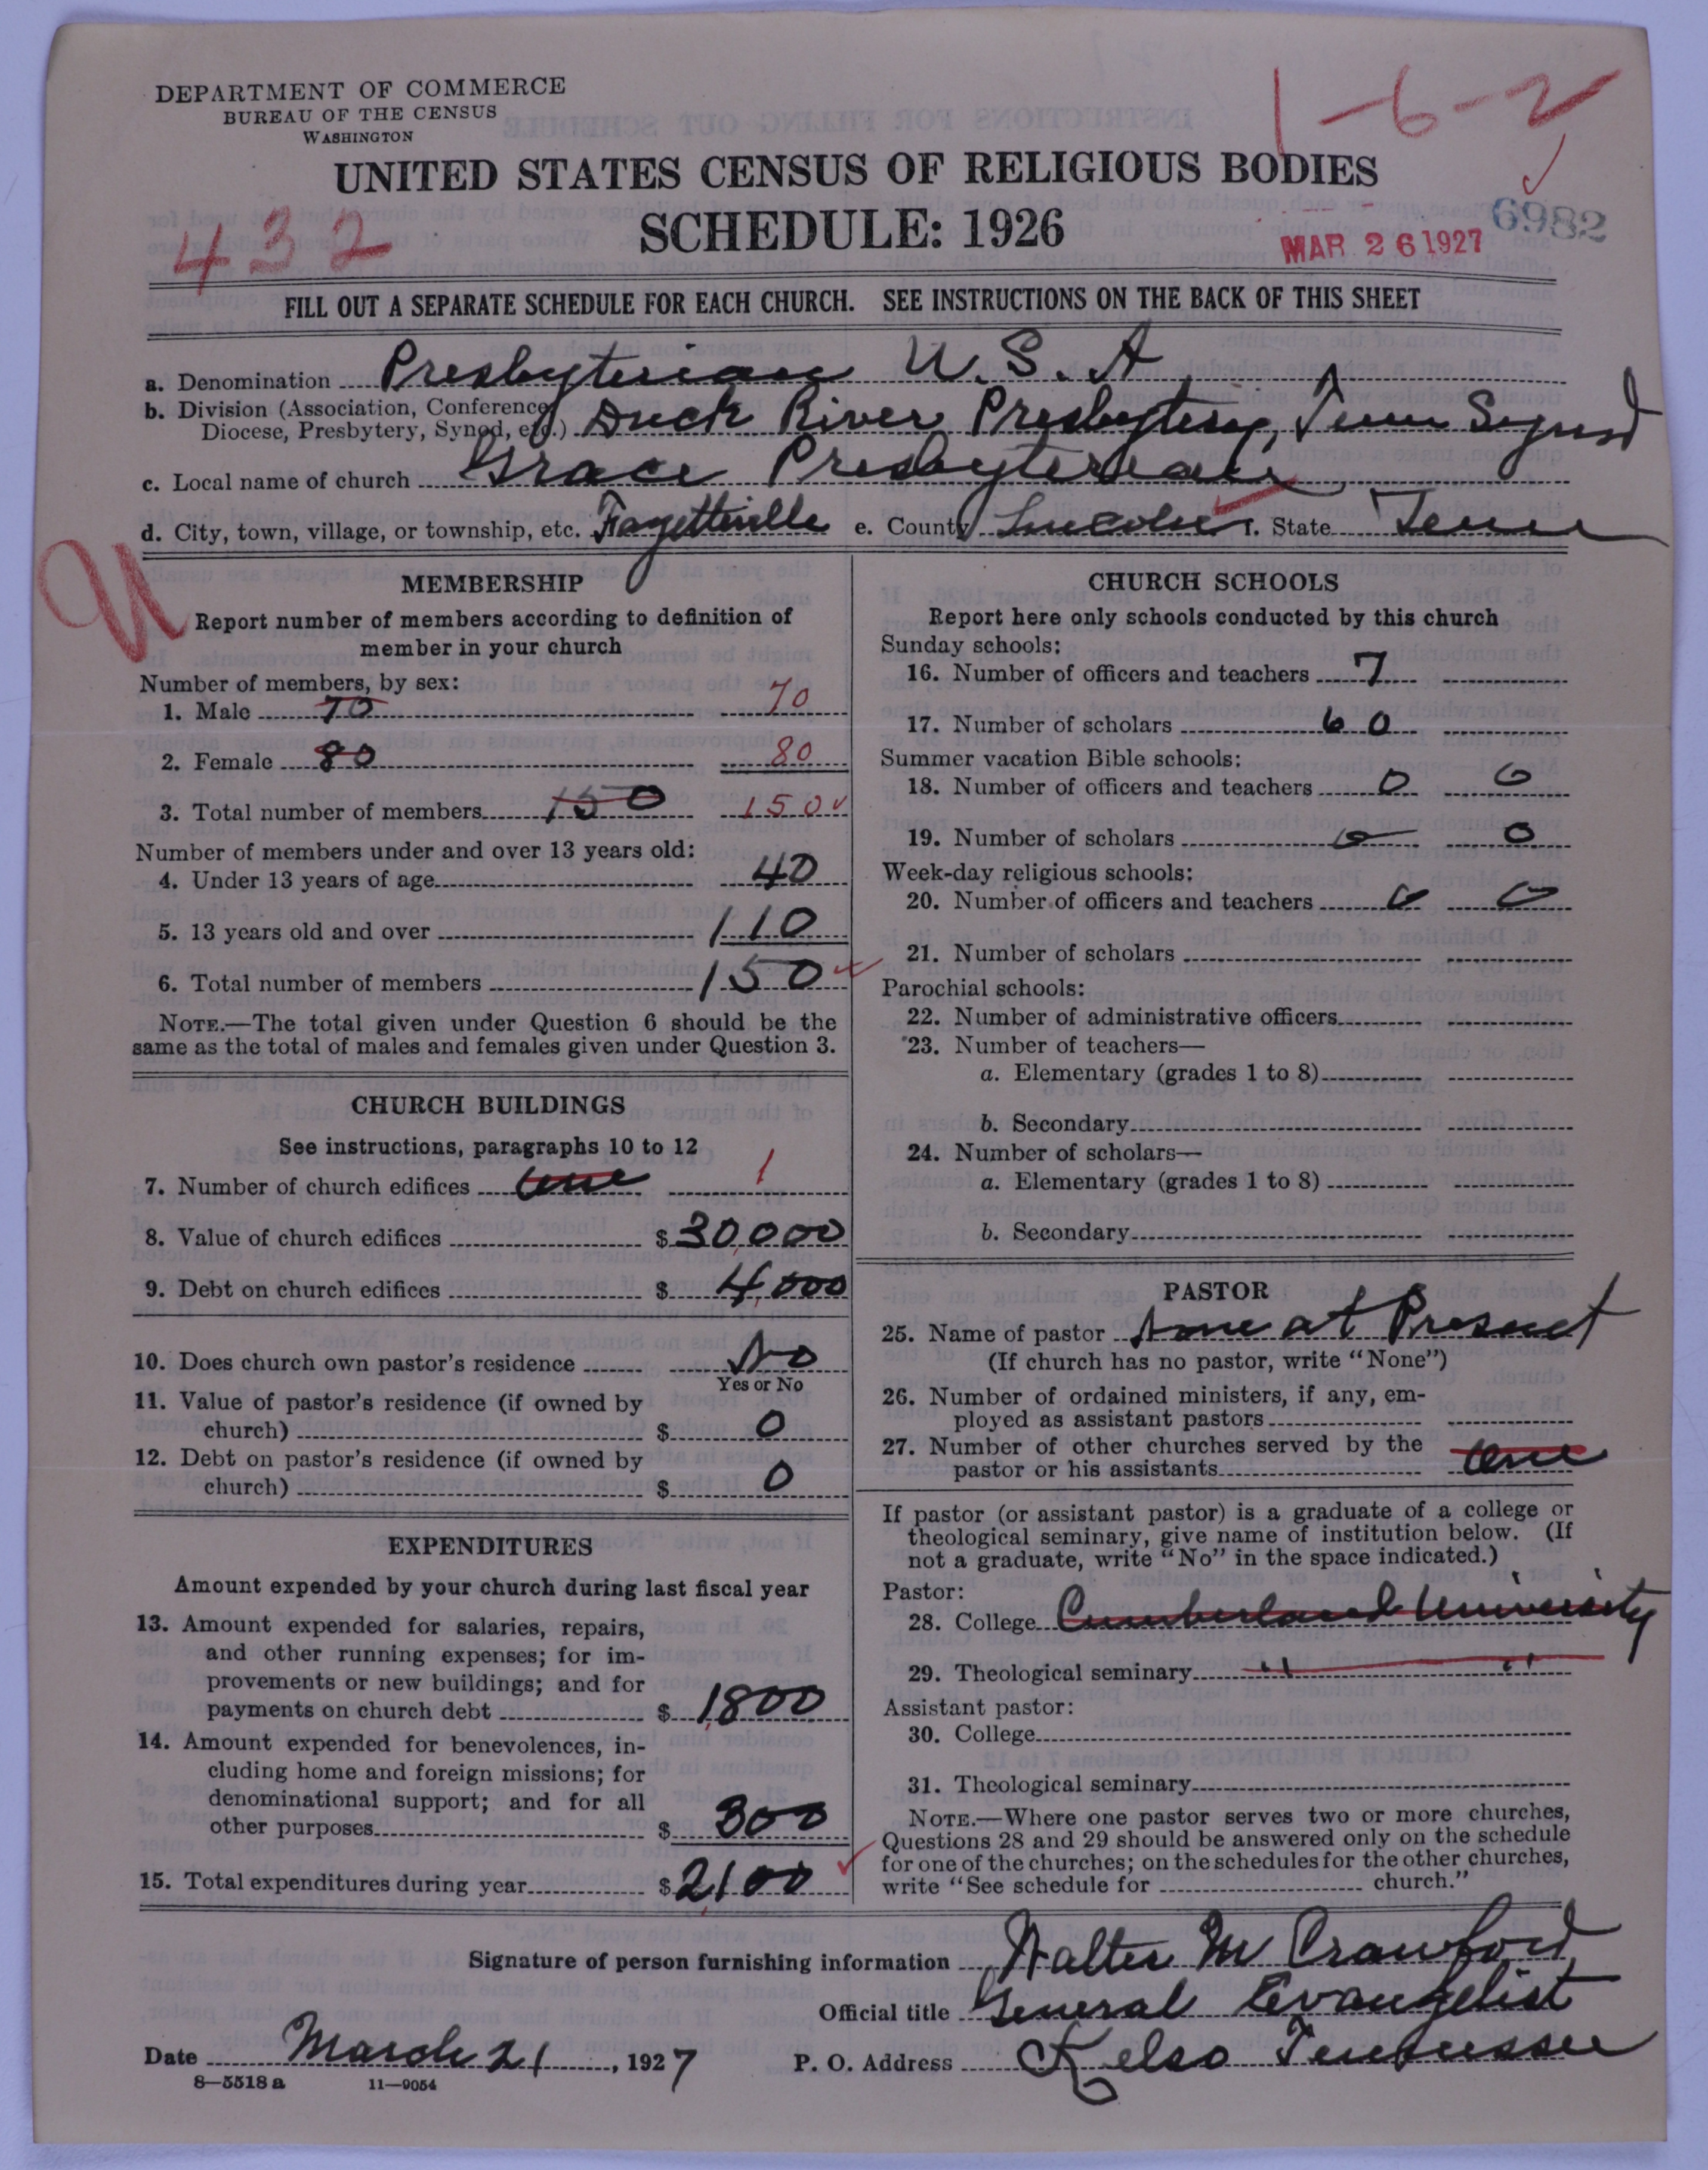 DEPARTMENT OF COMMERCE
BUREAU OF THE CENSUS
WASHINGTON
1-6-2
UNITED STATES CENSUS OF RELIGIOUS BODIES
432
SCHEDULE: 1926
MAR 26 1927
6982
FILL OUT A SEPARATE SCHEDULE FOR EACH CHURCH. SEE INSTRUCTIONS ON THE BACK OF THIS SHEET
a. Denomination Presbyterian U.S.A
b. Division (Association, Conference, Diocese, Presbytery, Synod, etc.) Duck River Presbytery, Tenn Synod
c. Local name of church Grace Presbyterian
d. City, town, village, or township, etc. Fayetteville e. County Lincoln f. State Tenn
U
MEMBERSHIP
Report number of members according to definition of
member in your church
Number of members, by sex:
1. Male 70 70
2. Female 80 80
3. Total number of members 150 150
Number of members under and over 13 years old:
4. Under 13 years of age 40
5. 13 years old and over 110
6. Total number of members 150
NOTE.—The total given under Question 6 should be the
same as the total of males and females given under Question 3.
CHURCH BUILDINGS
See instructions, paragraphs 10 to 12
7. Number of church edifices one 1
8. Value of church edifices $ 30,000
9. Debt on church edifices $ 4,000
10. Does church own pastor's residence No
Yes or No
11. Value of pastor's residence (if owned by
church) $ 0
12. Debt on pastor's residence (if owned by
church) $ 0
EXPENDITURES
Amount expended by your church during last fiscal year
13. Amount expended for salaries, repairs,
and other running expenses; for im-
provements or new buildings; and for
payments on church debt $ 1,800
14. Amount expended for benevolences, in-
cluding home and foreign missions; for
denominational support; and for all
other purposes $ 300
15. Total expenditures during year $ 2,100
CHURCH SCHOOLS
Report here only schools conducted by this church
Sunday schools:
16. Number of officers and teachers 7
17. Number of scholars 60
Summer vacation Bible schools:
18. Number of officers and teachers 0 0
19. Number of scholars 0 0
Week-day religious schools:
20. Number of officers and teachers 0 0
21. Number of scholars
Parochial schools:
22. Number of administrative officers
23. Number of teachers—
a. Elementary (grades 1 to 8)
b. Secondary
24. Number of scholars—
a. Elementary (grades 1 to 8)
b. Secondary
PASTOR
25. Name of pastor None at Present
(If church has no pastor, write "None")
26. Number of ordained ministers, if any, em-
ployed as assistant pastors
27. Number of other churches served by the
pastor or his assistants one
If pastor (or assistant pastor) is a graduate of a college or
theological seminary, give name of institution below. (If
not a graduate, write "No" in the space indicated.)
Pastor:
28. College Cumberland University
29. Theological seminary " "
Assistant pastor:
30. College
31. Theological seminary
NOTE.—Where one pastor serves two or more churches,
Questions 28 and 29 should be answered only on the schedule
for one of the churches; on the schedules for the other churches,
write "See schedule for church."
Signature of person furnishing information Walter M Crawford
Official title General Evangelist
Date March 21, 1927 P. O. Address Kelso Tennessee
8—5518 a 11—9054